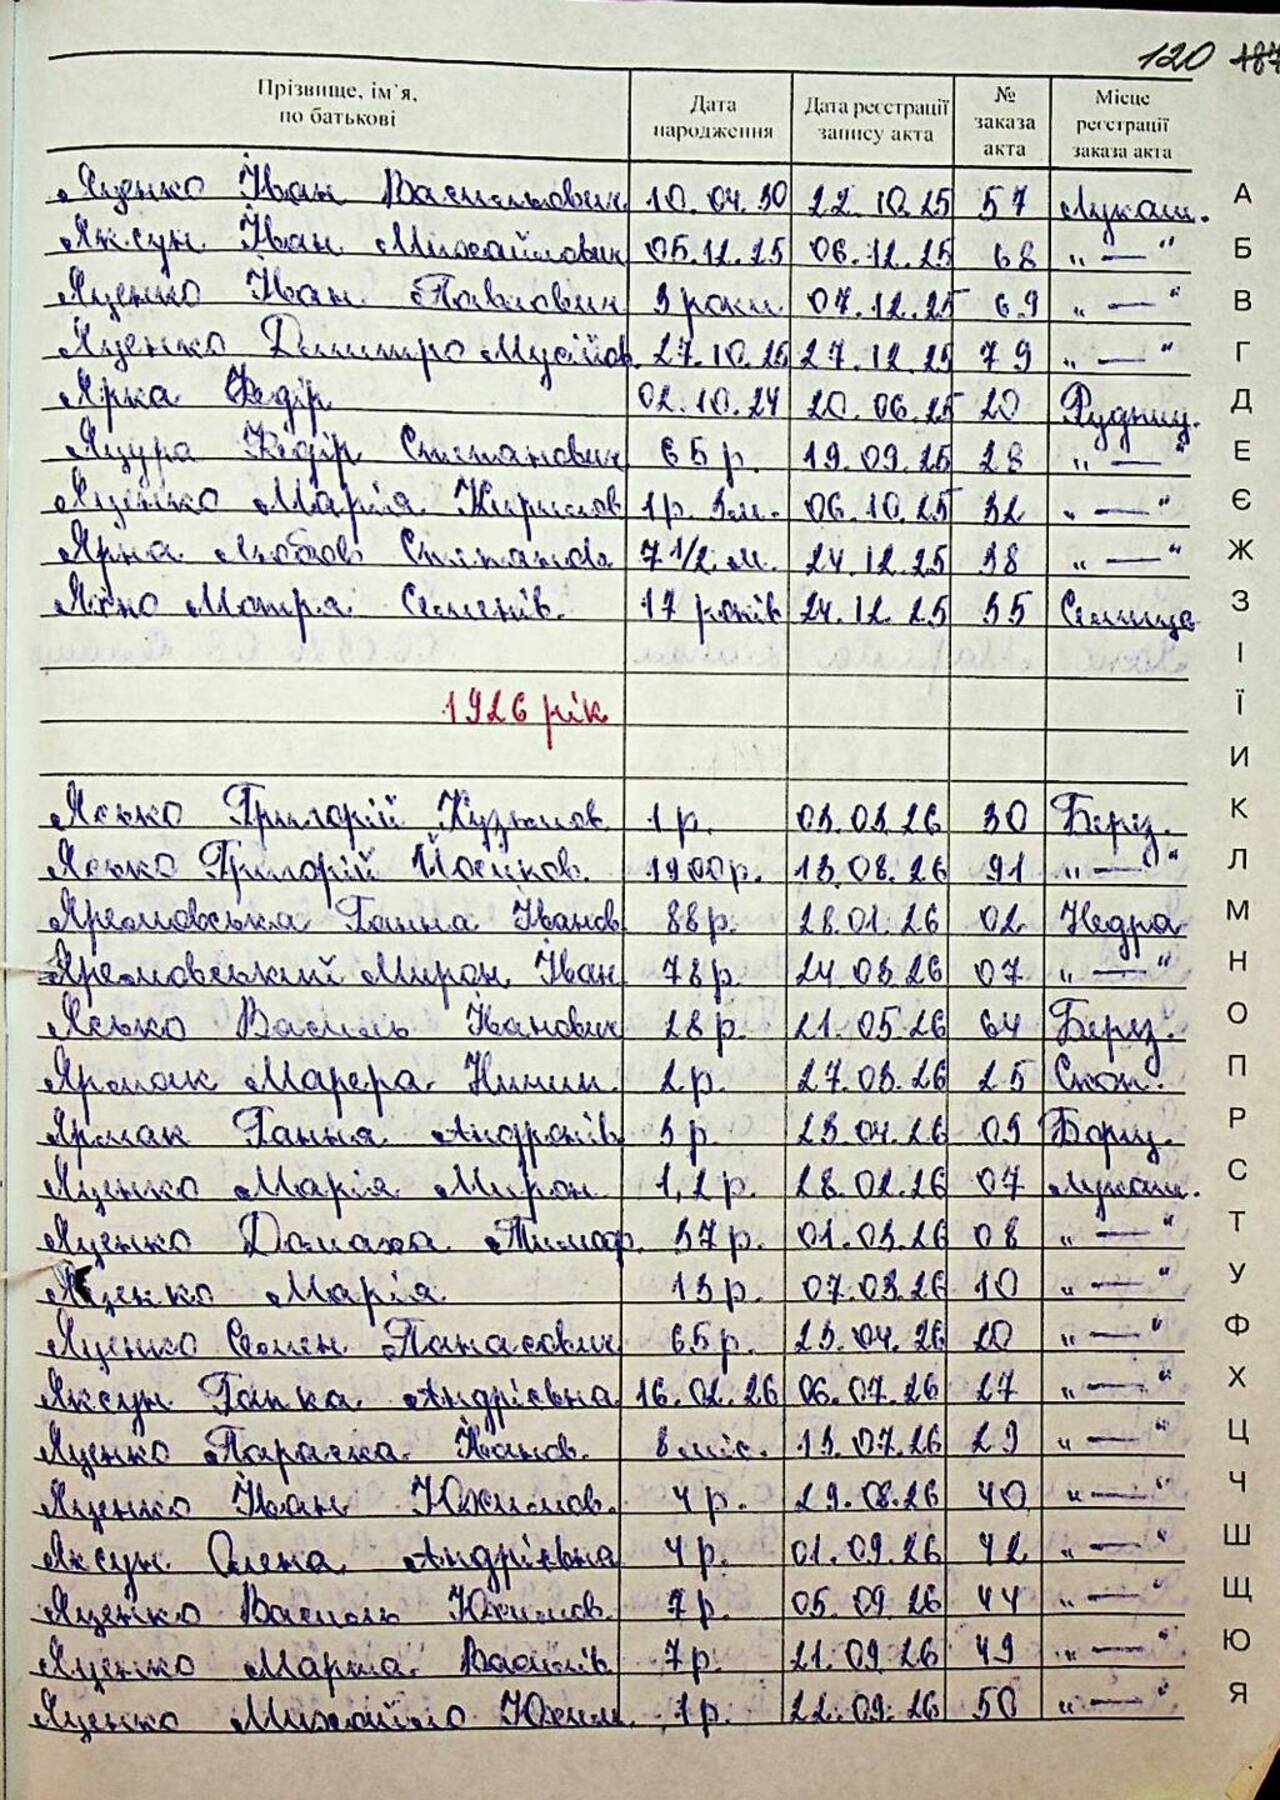 120 187
Прізвище, ім'я, по батькові Дата народження Дата реєстрації запису акта № заказа акта Місце реєстрації заказа акта
Яценко Іван Васильович 10.04.30 22.10.25 57 Лукаш. А
Яксун Іван Михайлович 05.12.25 06.12.25 68 „ — " Б
Яценко Іван Павлович 3 роки 07.12.25 69 „ — " В
Яценко Дмитро Мусійов. 27.10.25 27.12.25 79 „ — " Г
Ярка Федір 02.10.24 20.06.25 20 Рудниц. Д
Яцура Федір Степанович 65 р. 19.09.25 28 „ — " Е
Яценко Марія Кирилов 1р. 3м. 06.10.25 32 „ — " Є
Ярна Любов Степанова 7 1/2 м. 24.12.25 38 „ — " Ж
Ясно Мотря Семенів. 17 років 24.12.25 55 Селище З
І
1926 рік Ї
И
Ясько Григорій Кузьмов. 1 р. 03.03.26 30 Беріз. К
Ясько Григорій Йосипов. 1900р. 13.08.26 91 „ — " Л
Яремовська Ганна Іванов 88р. 28.01.26 02 Недра М
Яремовський Мирон Іван 78р. 24.03.26 07 „ — " Н
Ясько Василь Іванович 28р. 21.05.26 64 Берез. О
Ярмак Марфа 2р. 27.03.26 25 Скоп. П
Ярмак Ганна Андронів. 3 р. 23.04.26 09 Борщ. Р
Яценко Марія Мирон. 1,2 р. 28.02.26 07 Лукаш. С
Яценко Домаха Тимоф. 37 р. 01.03.26 08 „ — " Т
Яценко Марія 13 р. 07.03.26 10 „ — " У
Яценко Семен Панасович 65р. 23.04.26 20 „ — " Ф
Яксун Ганка Андріївна 16.02.26 06.07.26 27 „ — " Х
Яценко Параска Іванов. 8 міс. 13.07.26 29 „ — " Ц
Яценко Іван Юхимов. 4 р. 29.08.26 40 „ — " Ч
Яксун Олена Андріївна 4 р. 01.09.26 42 „ — " Ш
Яценко Василь Юхимов. 7 р. 05.09.26 44 „ — " Щ
Яценко Марта Василів. 7р. 21.09.26 49 „ — " Ю
Яценко Михайло Юхим. 1р. 22.09.26 50 „ — " Я